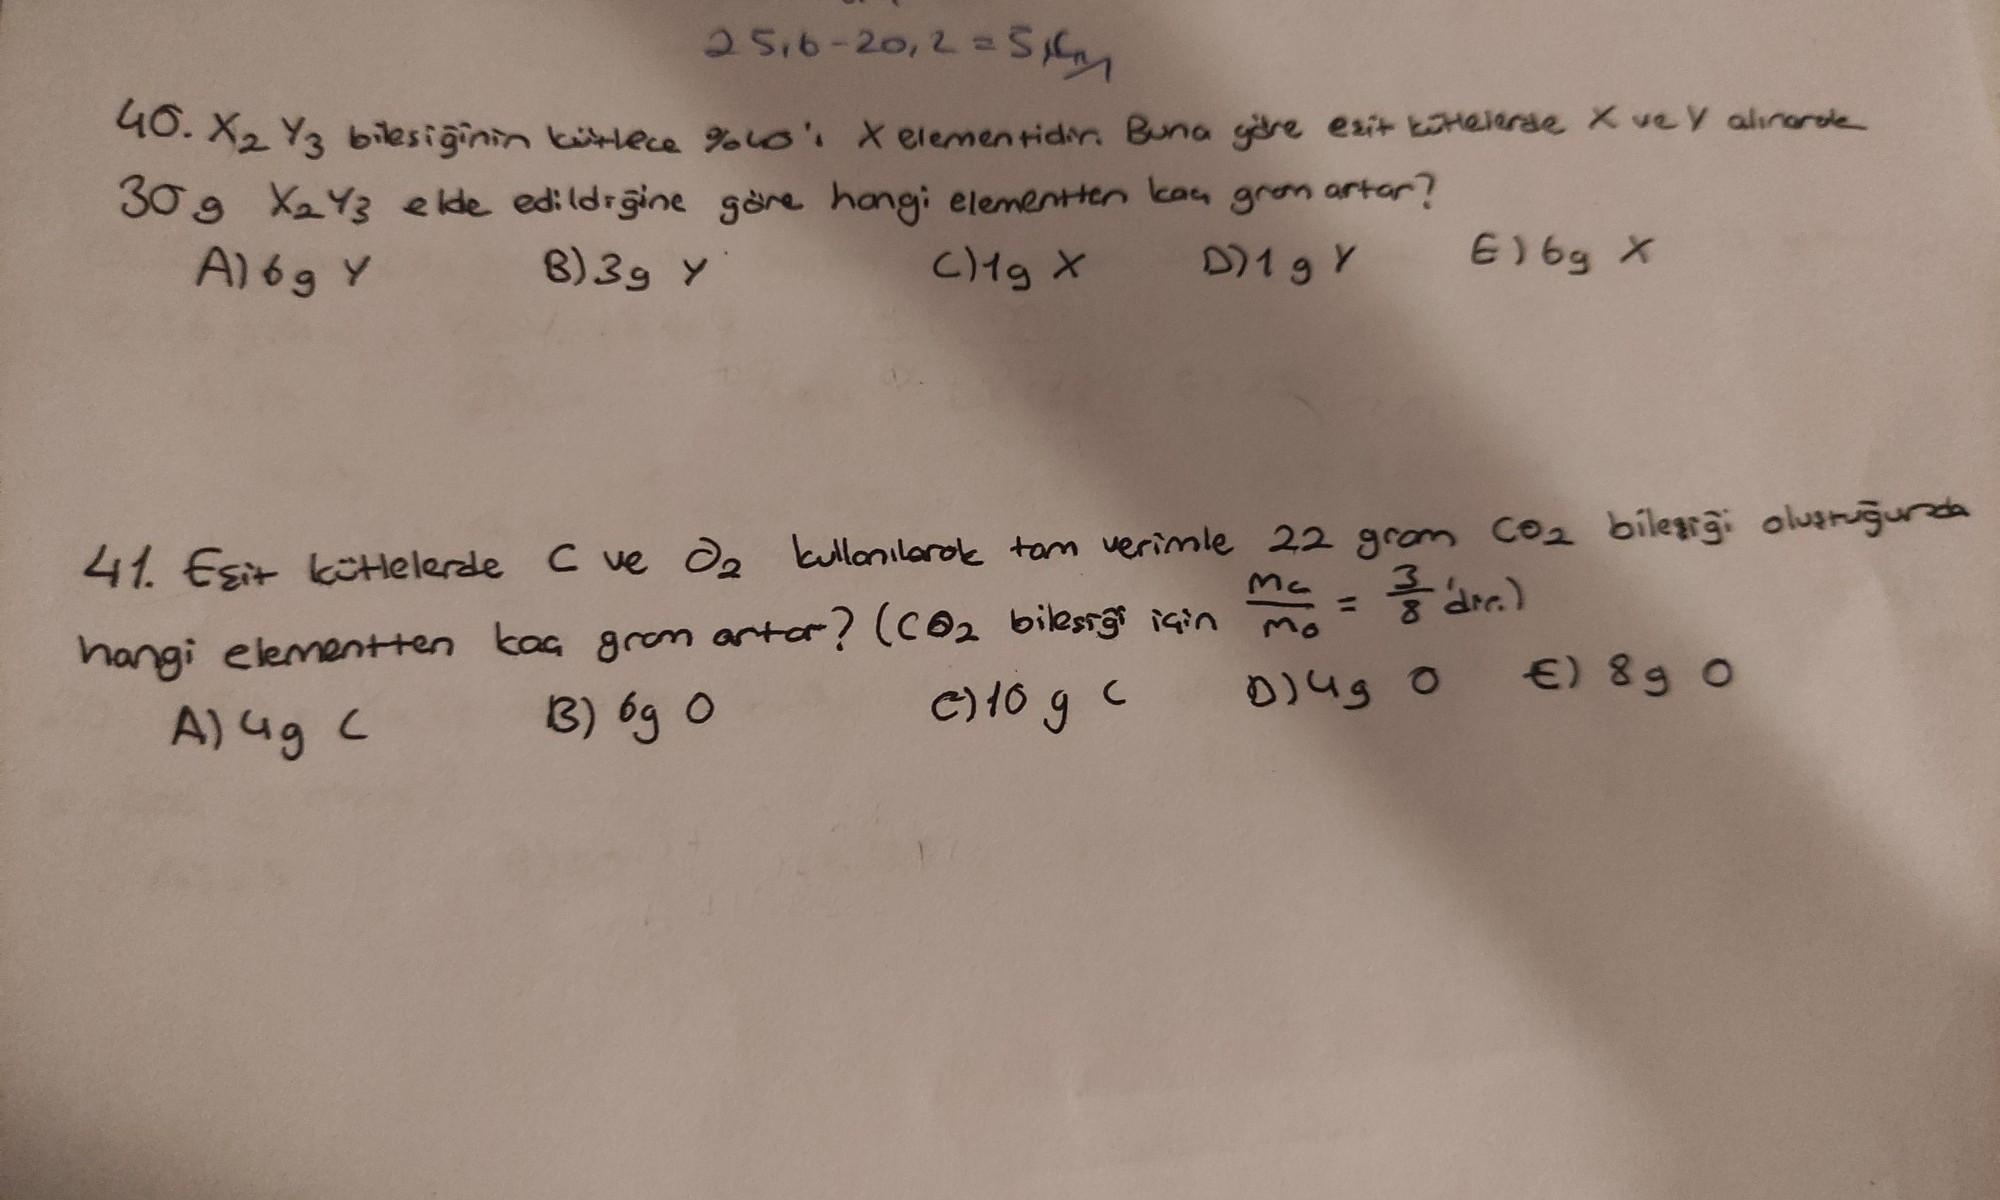 25,6-20,2=5,4
40. X₂Y₃ bileşiğinin kütlece %40'ı X elementidir. Buna göre eşit kütlelerde X ve Y alınarak
30 g X₂Y₃ elde edildiğine göre hangi elementten kaç gram artar?
A) 6 g Y B) 3 g Y C) 1 g X D) 1 g Y E) 6 g X
41. Eşit kütlelerde C ve O₂ kullanılarak tam verimle 22 gram CO₂ bileşiği oluştuğunda
hangi elementten kaç gram artar? (CO₂ bileşiği için mc/mo = 3/8'dir.)
A) 4 g C B) 6 g O C) 10 g C D) 4 g O E) 8 g O